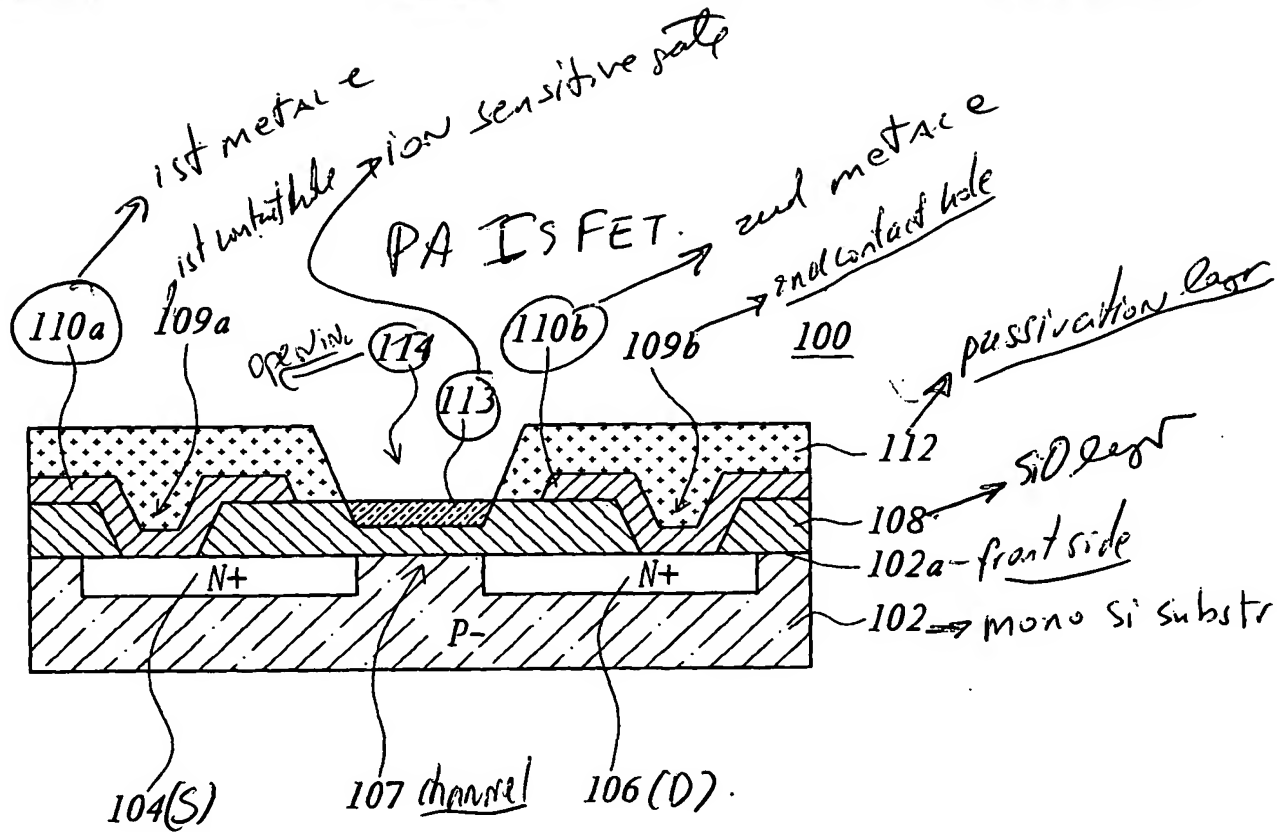 1st metal e
1st contact hole
ion sensitive gate
PA ISFET.
2nd metal e
2nd contact hole
110a
109a
opening
114
113
110b
109b
100
passivation layr
112
SiO layr
108
102a - front side
102 → mono si substr
N+
N+
P-
104(S)
107 channel
106(D).